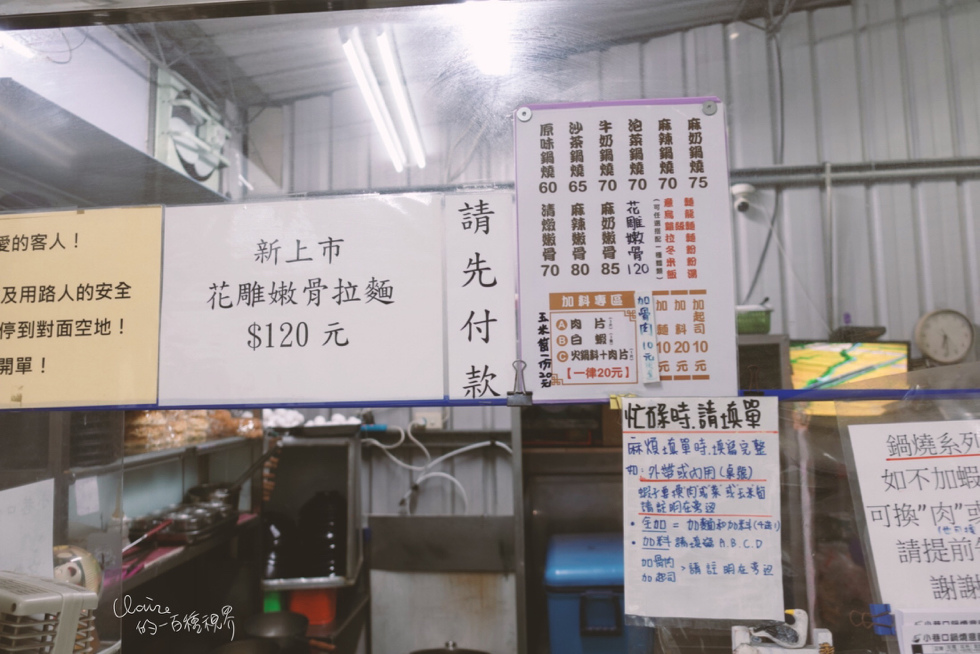 愛的客人！
及用路人的安全
停到對面空地！
開單！
新上市
花雕嫩骨拉麵
$120 元
請先付款
原味鍋燒 60
沙茶鍋燒 65
牛奶鍋燒 70
泡菜鍋燒 70
麻辣鍋燒 70
麻奶鍋燒 75
清燉嫩骨 70
麻辣嫩骨 80
麻奶嫩骨 85
花雕嫩骨 120
加料專區
A 肉片
B 白蝦
C 火鍋料＋肉片
【一律20元】
玉米筍一份20元
加骨肉10元
加麵 10元
加料 20元
加起司 10元
忙碌時.請填單
麻煩填單時.填寫完整
如:外帶或內用(桌號)
請註明在旁邊
加料請填寫 A.B.C.D
加骨肉
加起司
請註明在旁邊
鍋燒系列
如不加蝦
可換"肉"或
請提前
謝謝
Claire
的一百種視界